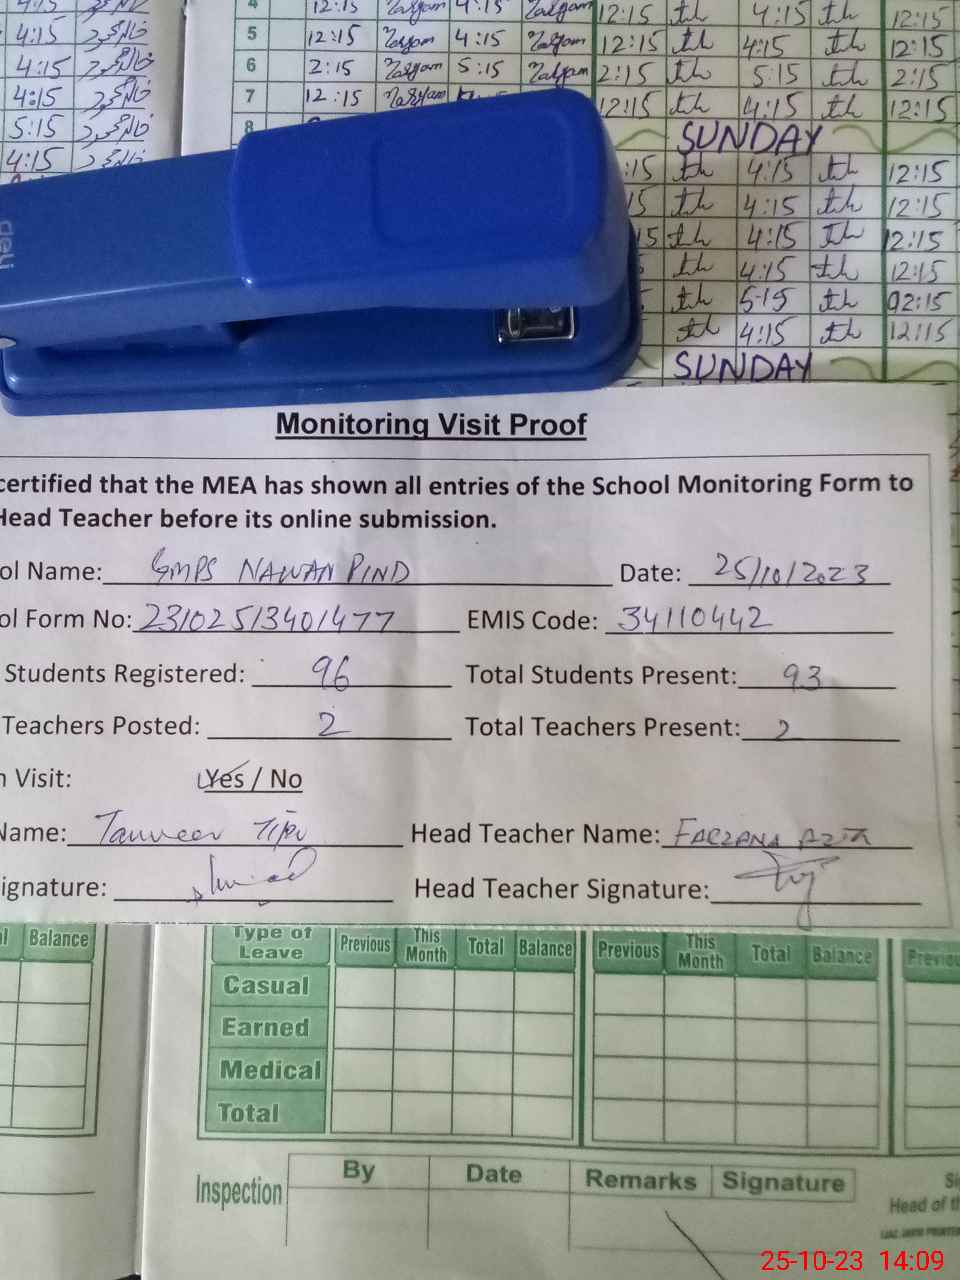 4:15 خالد محمود
4:15 خالد محمود
4:15 خالد محمود
5:15 خالد محمود
4:15 خالد محمود
4 12:15 Maryam 4:15 Maryam 12:15 4:15 12:15
5 12:15 Maryam 4:15 Maryam 12:15 4:15 12:15
6 2:15 Maryam 5:15 Maryam 2:15 5:15 2:15
7 12:15 Maryam 12:15 4:15 12:15
8 SUNDAY
:15 4:15 12:15
15 4:15 12:15
15 4:15 12:15
4:15 12:15
5-15 02:15
4:15 12:15
SUNDAY
deli
Monitoring Visit Proof
certified that the MEA has shown all entries of the School Monitoring Form to
Head Teacher before its online submission.
ol Name: GMPS NAWAN PIND Date: 25/10/2023
ol Form No: 23102513401477 EMIS Code: 34110442
Students Registered: 96 Total Students Present: 93
Teachers Posted: 2 Total Teachers Present: 2
n Visit: Yes / No
Name: Tanveer Tipu Head Teacher Name: FARZANA AZIZ
ignature: Head Teacher Signature:
al Balance Type of Leave Previous This Month Total Balance Previous This Month Total Balance Previou
Casual
Earned
Medical
Total
Inspection By Date Remarks Signature
Head of th
25-10-23 14:09